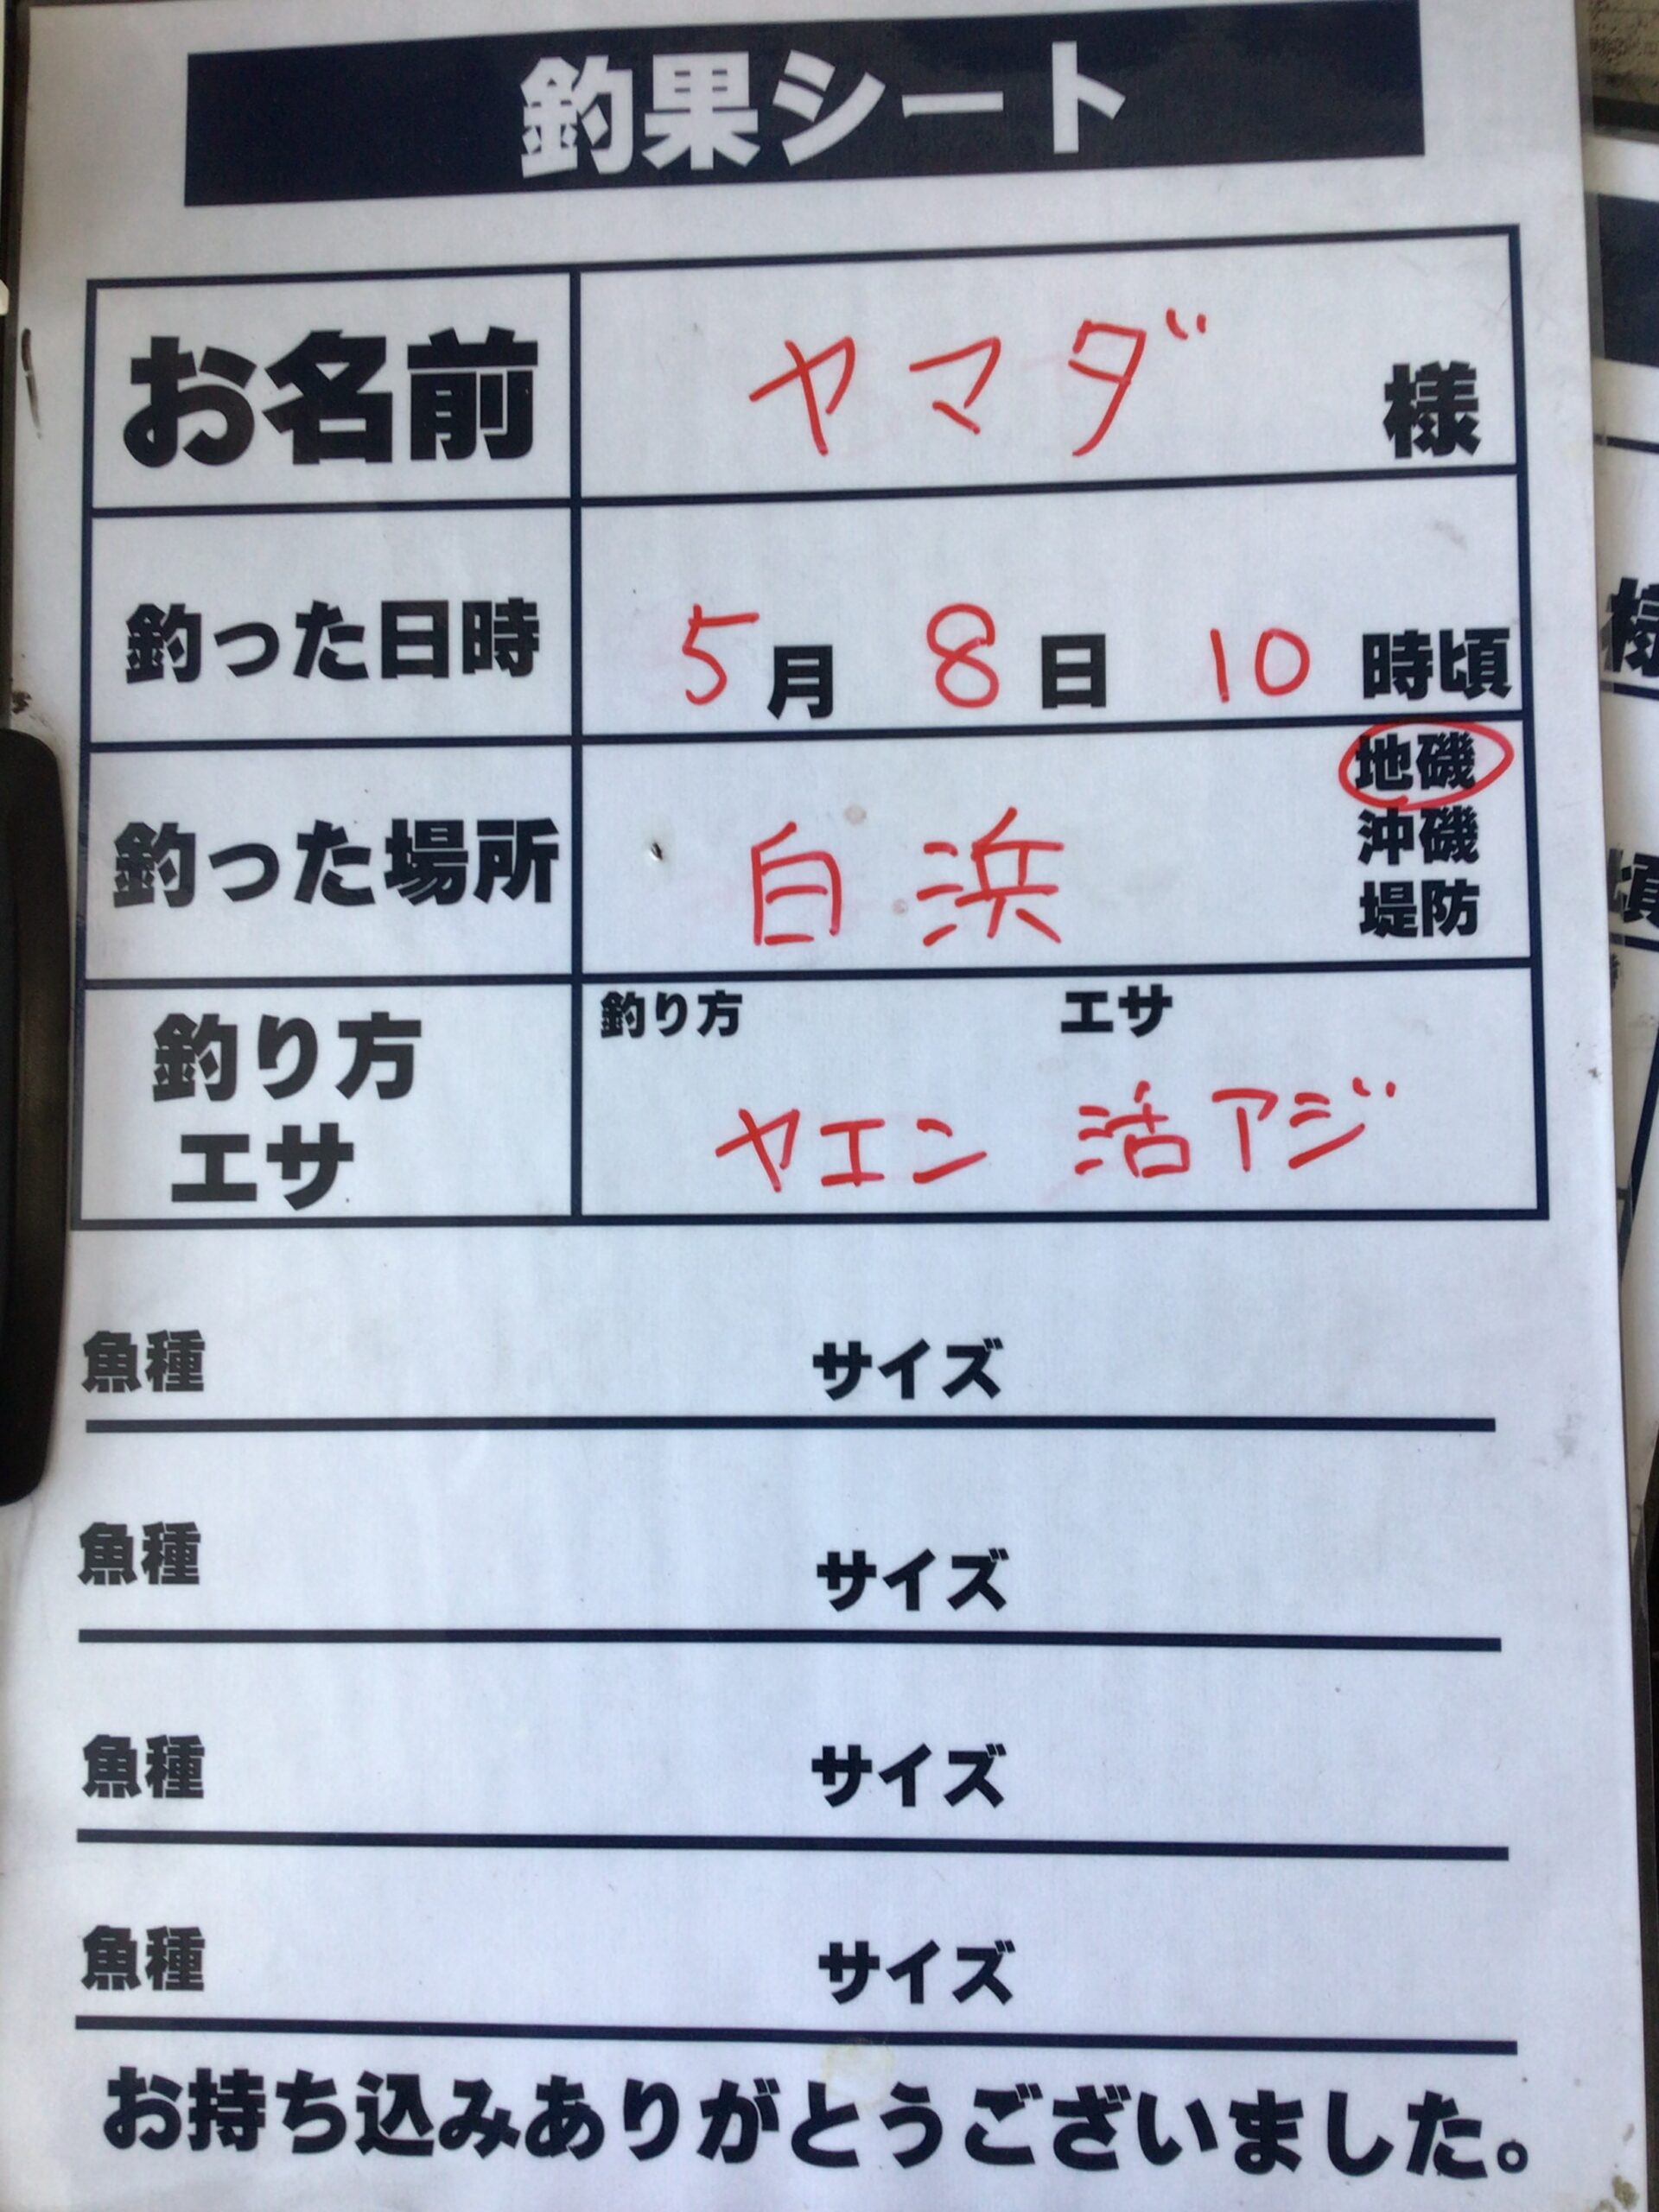 釣果シート
お名前 ヤマダ 様
釣った日時 5月 8日 10時頃
釣った場所 白浜 地磯
沖磯
堤防
釣り方 エサ
釣り方
エサ
ヤエン 活アジ
魚種 サイズ
魚種 サイズ
魚種 サイズ
魚種 サイズ
お持ち込みありがとうございました。
様
頃